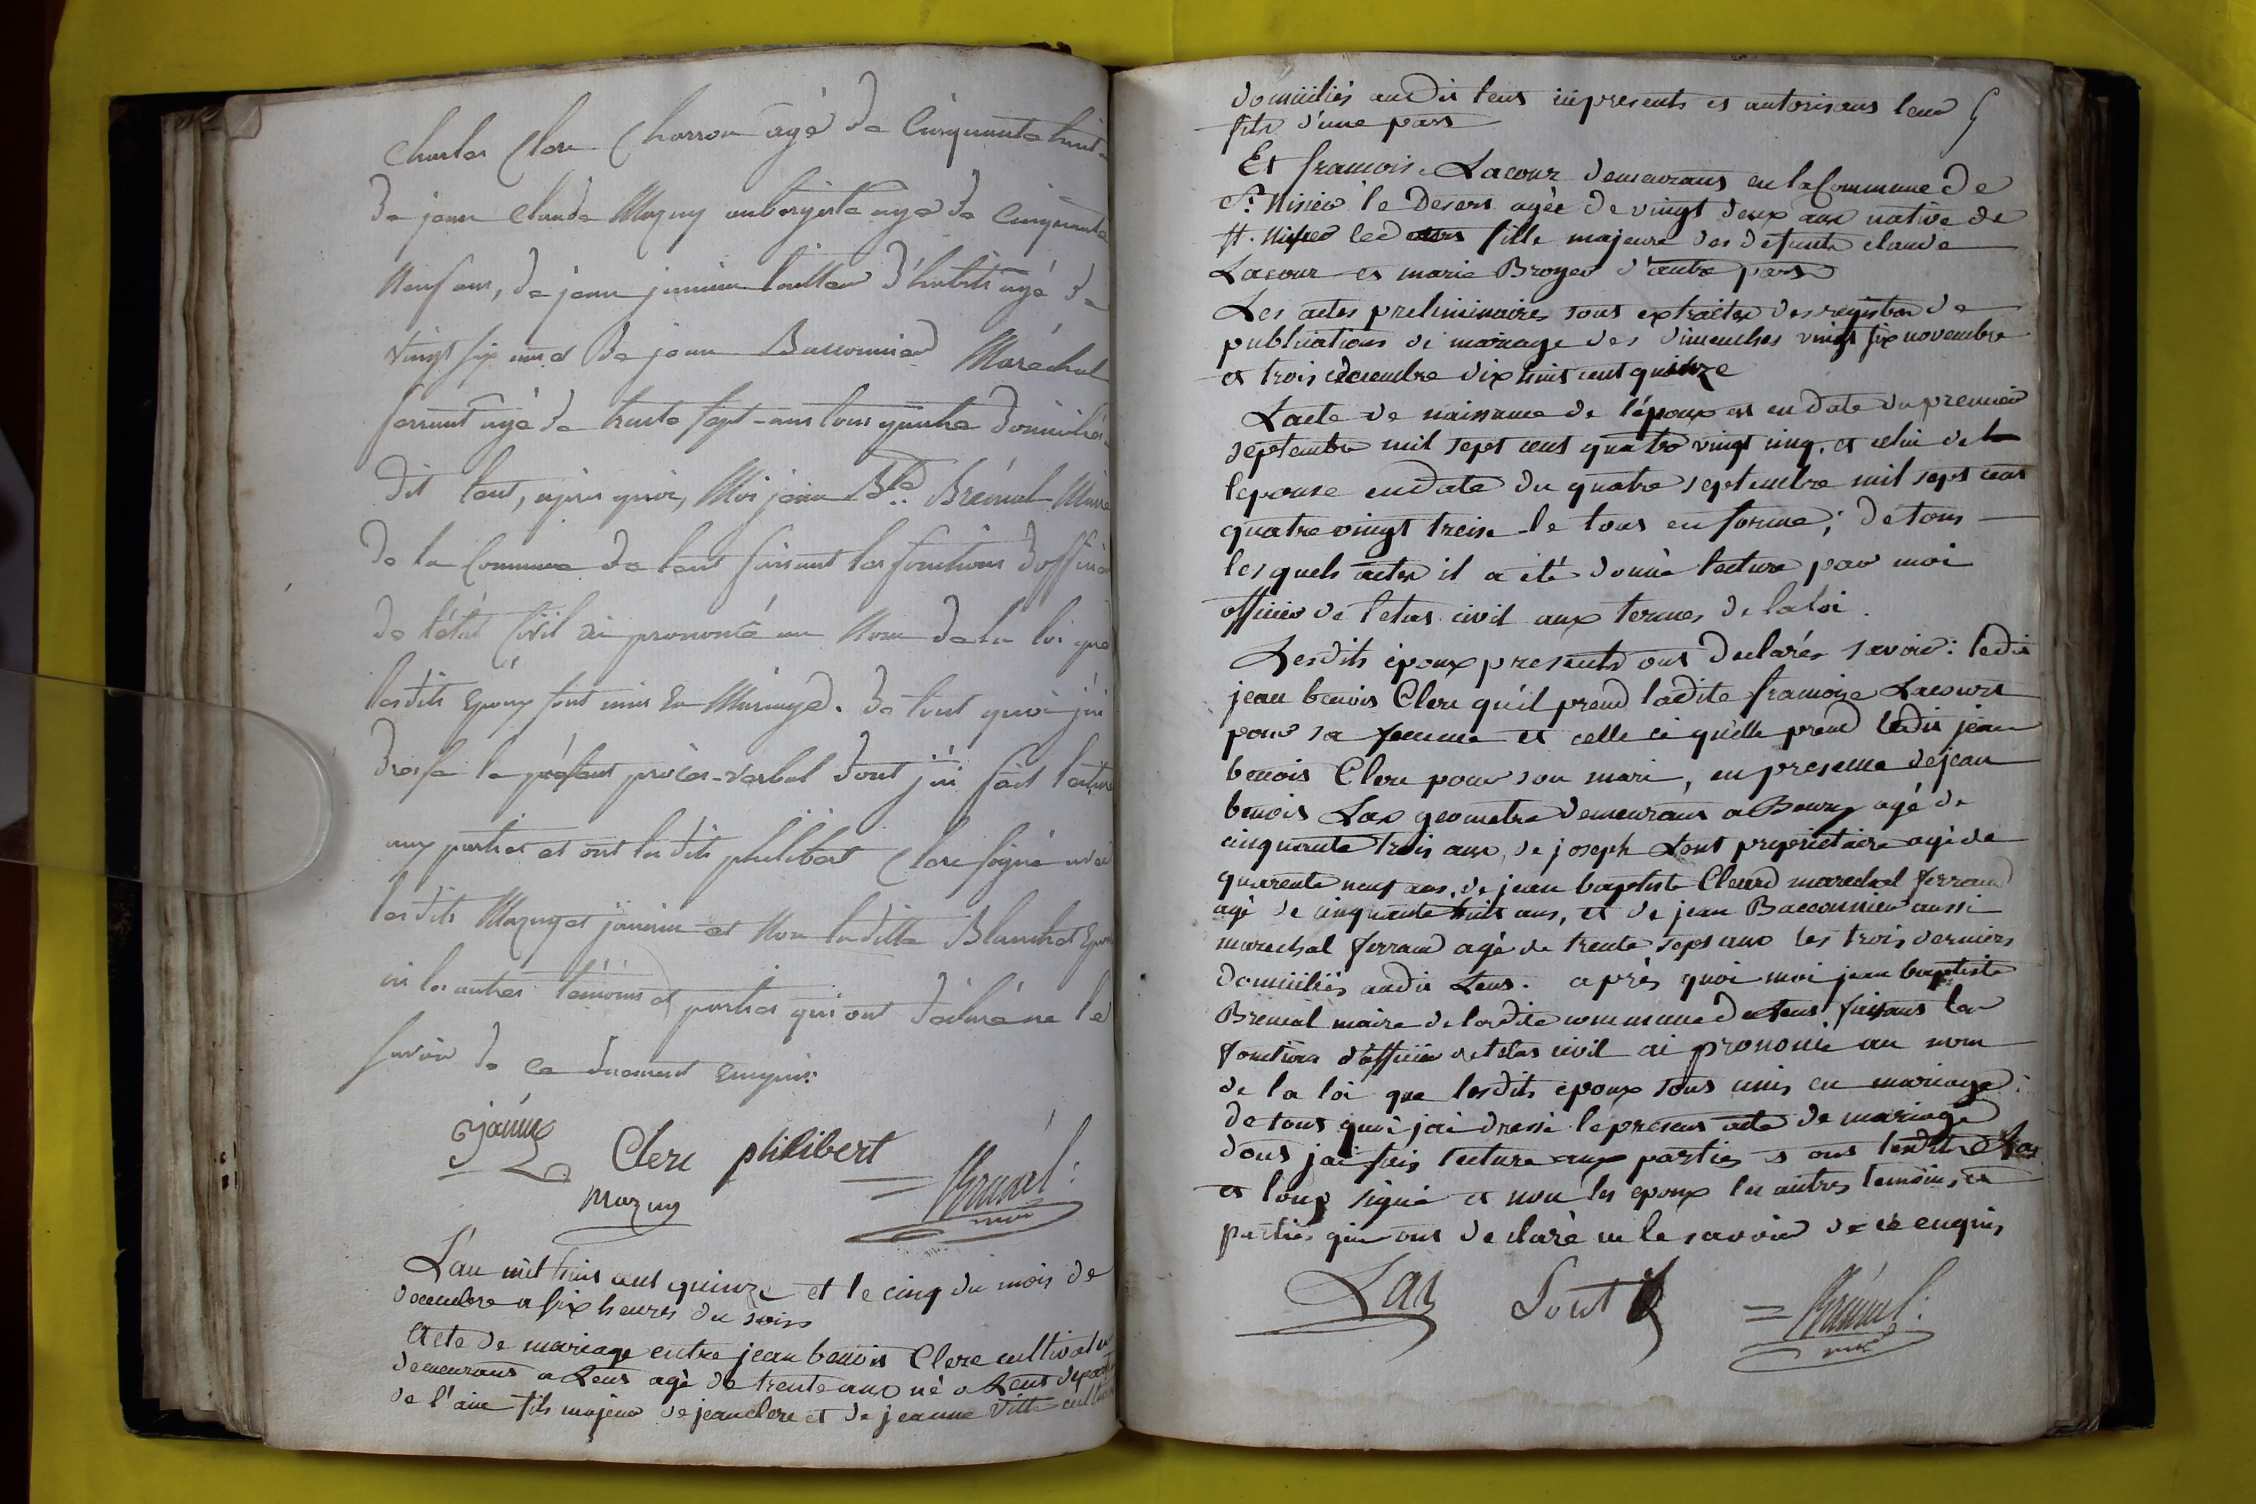 Charles Clerc Charron agé de Cinquante huit
de jean Claude Mazuy aubergiste agé de Cinquante
Neuf ans, de jean jannin tailleur d'habits agé de
vingt six ans et de jean Bacconnier Maréchal
ferrant agé de trente sept ans tous quatre domiciliés
dit Lent, après quoi, Moi jean Bte Brémal Maire
de la Commune de Lent faisant les fonctions d'officier
de l'état Civil ai prononcé au Nom de la loi que
lesdits Epoux sont unis En Mariage. de tout quoi j'ai
dressé le présent procès-verbal dont j'ai fait lecture
aux parties et ont lesdits philibert Clerc signé avec
lesdits Mazuy et jannin et Non laditte Blanchet Epouse
ni les autres témoins et parties qui ont déclaré ne le
savoir de ce duement Enquis.
jannin
Clerc philibert
Mazuy
Brémal
mre
L'an mil huit cent quinze et le cinq du mois de
decembre a six heures du soir
Acte de mariage entre jean benoit Clerc cultivateur
demeurant a Lent agé de trente ans né a Lent depart
de l'ain fils majeur de jean clerc et de jeanne Vitte cultiv
domiciliés audit lent ici presents et autorisant leur
fils d'une part
Et francoise Lacour demeurant en la Commune de
St. Nisier le Desert agée de vingt deux ans native de
St. Nisier led fille majeure des defunts claude
Lacour et marie Broyer d'autre part
Les actes preliminaires sont extraits des registres de
publications de mariage des dimanches vingt six novembre
et trois decembre dix huit cent quinze
L'acte de naissance de l'époux est en date du premier
septembre mil sept cent quatre vingt cinq, et celui de
l'epouse en date du quatre septembre mil sept cent
quatre vingt treize le tout en forme; de tous
lesquels actes il a été donné lecture par moi
officier de l'etat civil aux termes de la loi.
Lesdits époux presents ont declarés savoir: ledit
jean benoit Clerc qu'il prend ladite francoise Lacour
pour sa femme et celle ci qu'elle prend ledit jean
benoit Clerc pour son mari, en presence de jean
benoit Las geometre demeurant a Bourg agé de
cinquante trois ans, de joseph Lout propriétaire agé de
quarente neuf ans, de jean baptiste Cleard marechal ferrand
agé de cinquante huit ans, et de jean Bacconnier aussi
marechal ferrand agé de trente sept ans les trois derniers
domiciliés audit Lent. après quoi moi jean baptiste
Bremal maire de ladite commune de Lent faisant les
fonctions d'officier de l'etat civil ai prononcé au nom
de la loi que lesdits époux sont unis en mariage:
de tout quoi j'ai dressé le present acte de mariage
dont j'ai fait lecture aux parties et ont lesdits Las
et loup signé et non les epoux les autres temoins et
parties qui ont declaré ne le savoir de ce enquis
Las
Lout
Brémal
mre